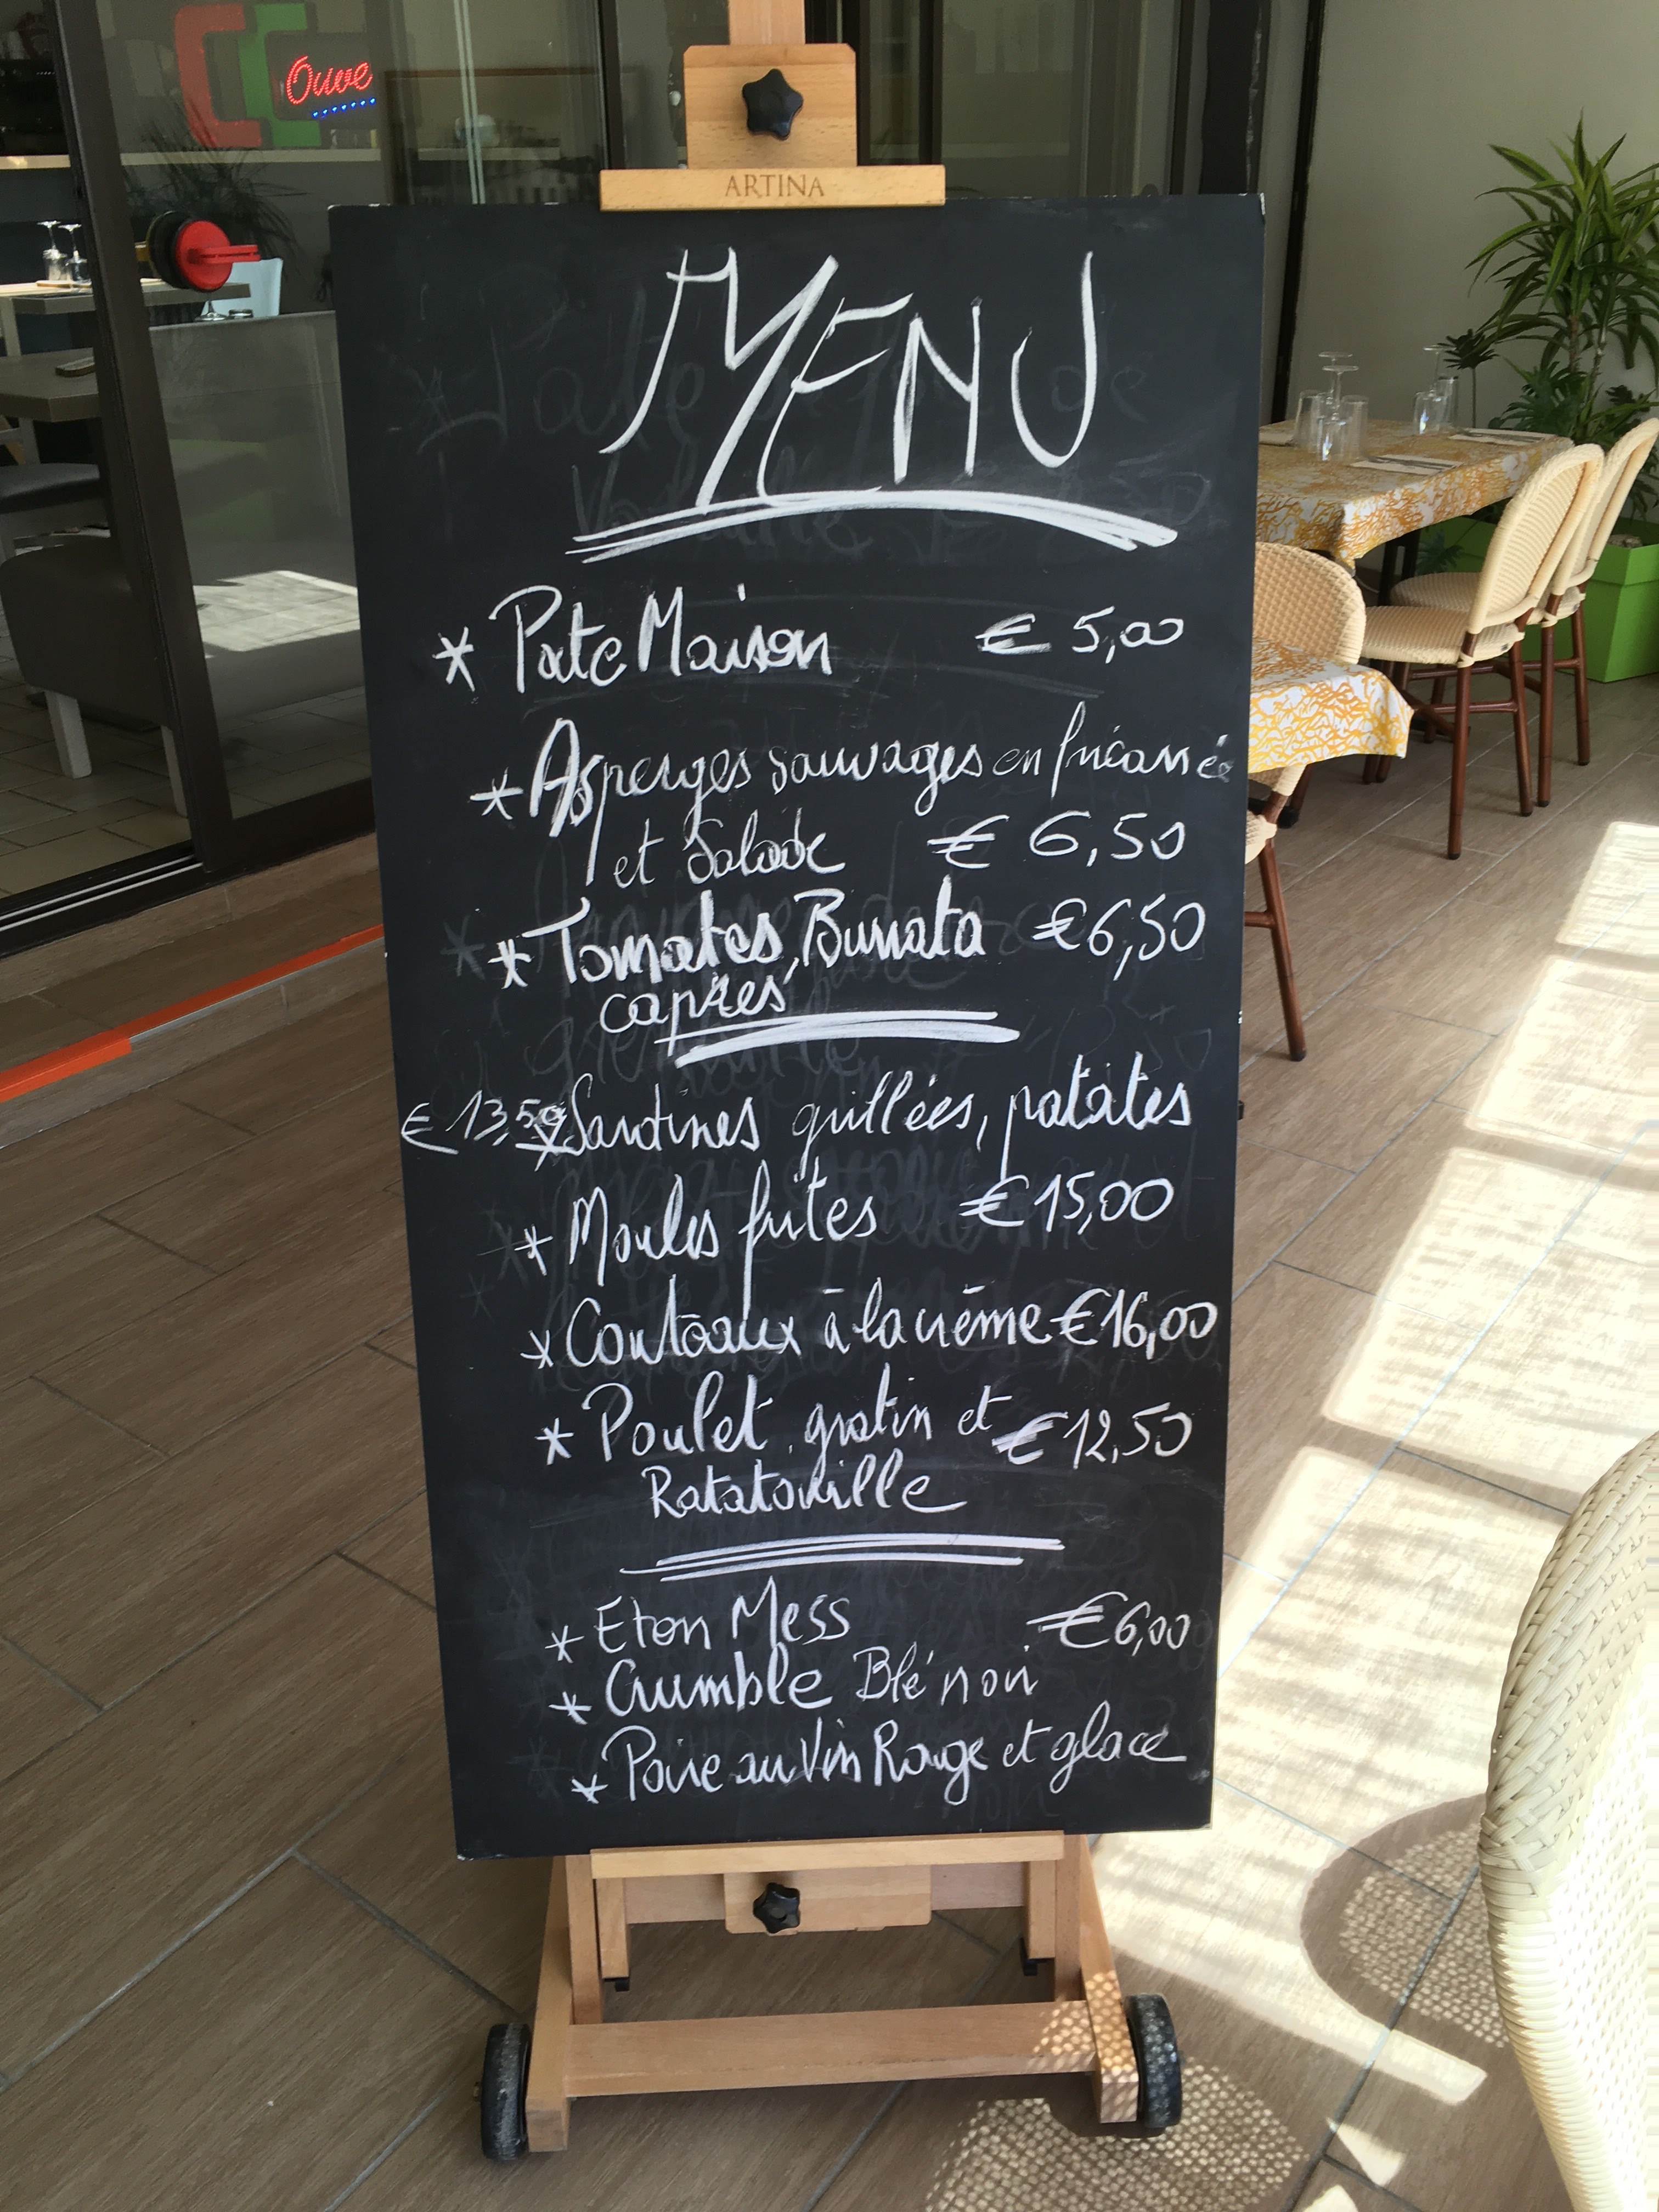 Ouve
ARTINA
MENU
* Pate Maison € 5,00
* Asperges sauvages en fricassée
et Salade € 6,50
* Tomates, Burrata €6,50
capres
€ 13,50 * Sardines grillées, patates
* Moules frites €15,00
* Couteaux à la crème €16,00
* Poulet, gratin et €12,50
Ratatouille
* Eton Mess €6,00
* Crumble Blé noir
* Poire au Vin Rouge et glace